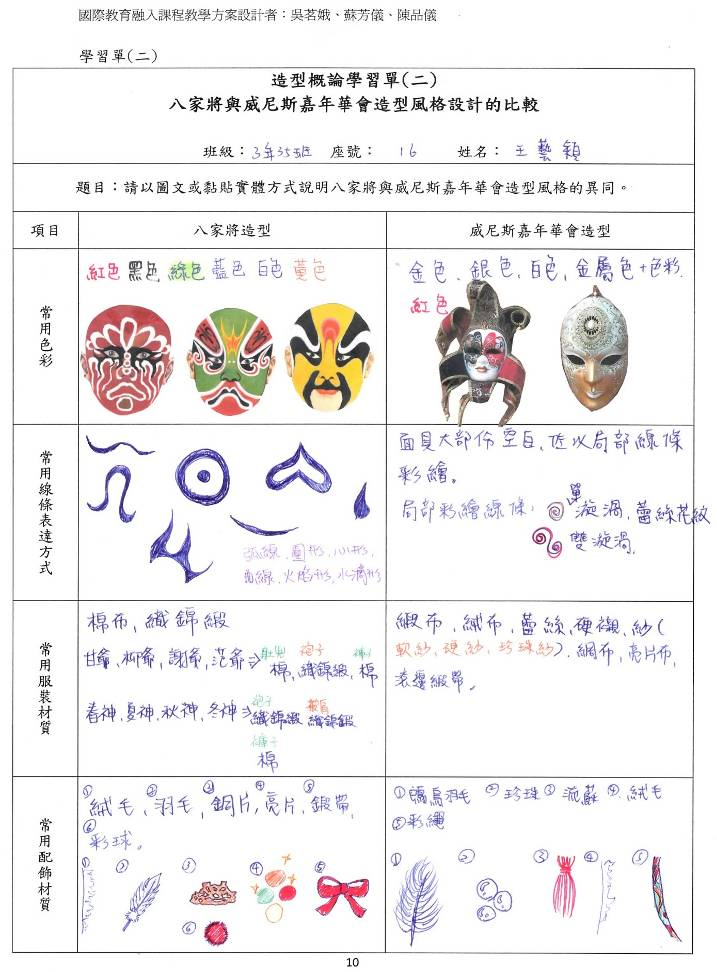 國際教育融入課程教學方案設計者：吳茗娥、蘇芳儀、陳品儀
學習單(二)
造型概論學習單(二)
八家將與威尼斯嘉年華會造型風格設計的比較
班級：3年35班 座號： 16 姓名：王藝穎
題目：請以圖文或黏貼實體方式說明八家將與威尼斯嘉年華會造型風格的異同。
項目 八家將造型 威尼斯嘉年華會造型
常用色彩
紅色 黑色 綠色 藍色 白色 黃色
金色、銀色、白色、金屬色+色彩、
紅色
常用線條表達方式
弧線、圓形、心形、
曲線、火焰形、水滴形
面具大部份空白、佐以局部線條
彩繪。
局部彩繪線條： 單漩渦、蕾絲花紋
雙漩渦、
常用服裝材質
棉布、織錦緞
甘爺、柳爺、謝爺、范爺⇒ 肚兜 袍子 褲子
棉、織錦緞、棉
春神、夏神、秋神、冬神⇒ 袍子 披肩
織錦緞 織錦緞
褲子
棉
緞布、絨布、蕾絲、硬襯、紗(
軟紗、硬紗、珍珠紗)、綢布、亮片布、
滾邊緞帶。
常用配飾材質
①絨毛、②羽毛、③銅片、④亮片、⑤緞帶、
⑥彩球。
① ② ③ ④ ⑤
⑥
①鴕鳥羽毛 ②珍珠 ③流蘇 ④絨毛
⑤彩繩
① ② ③ ④ ⑤
10